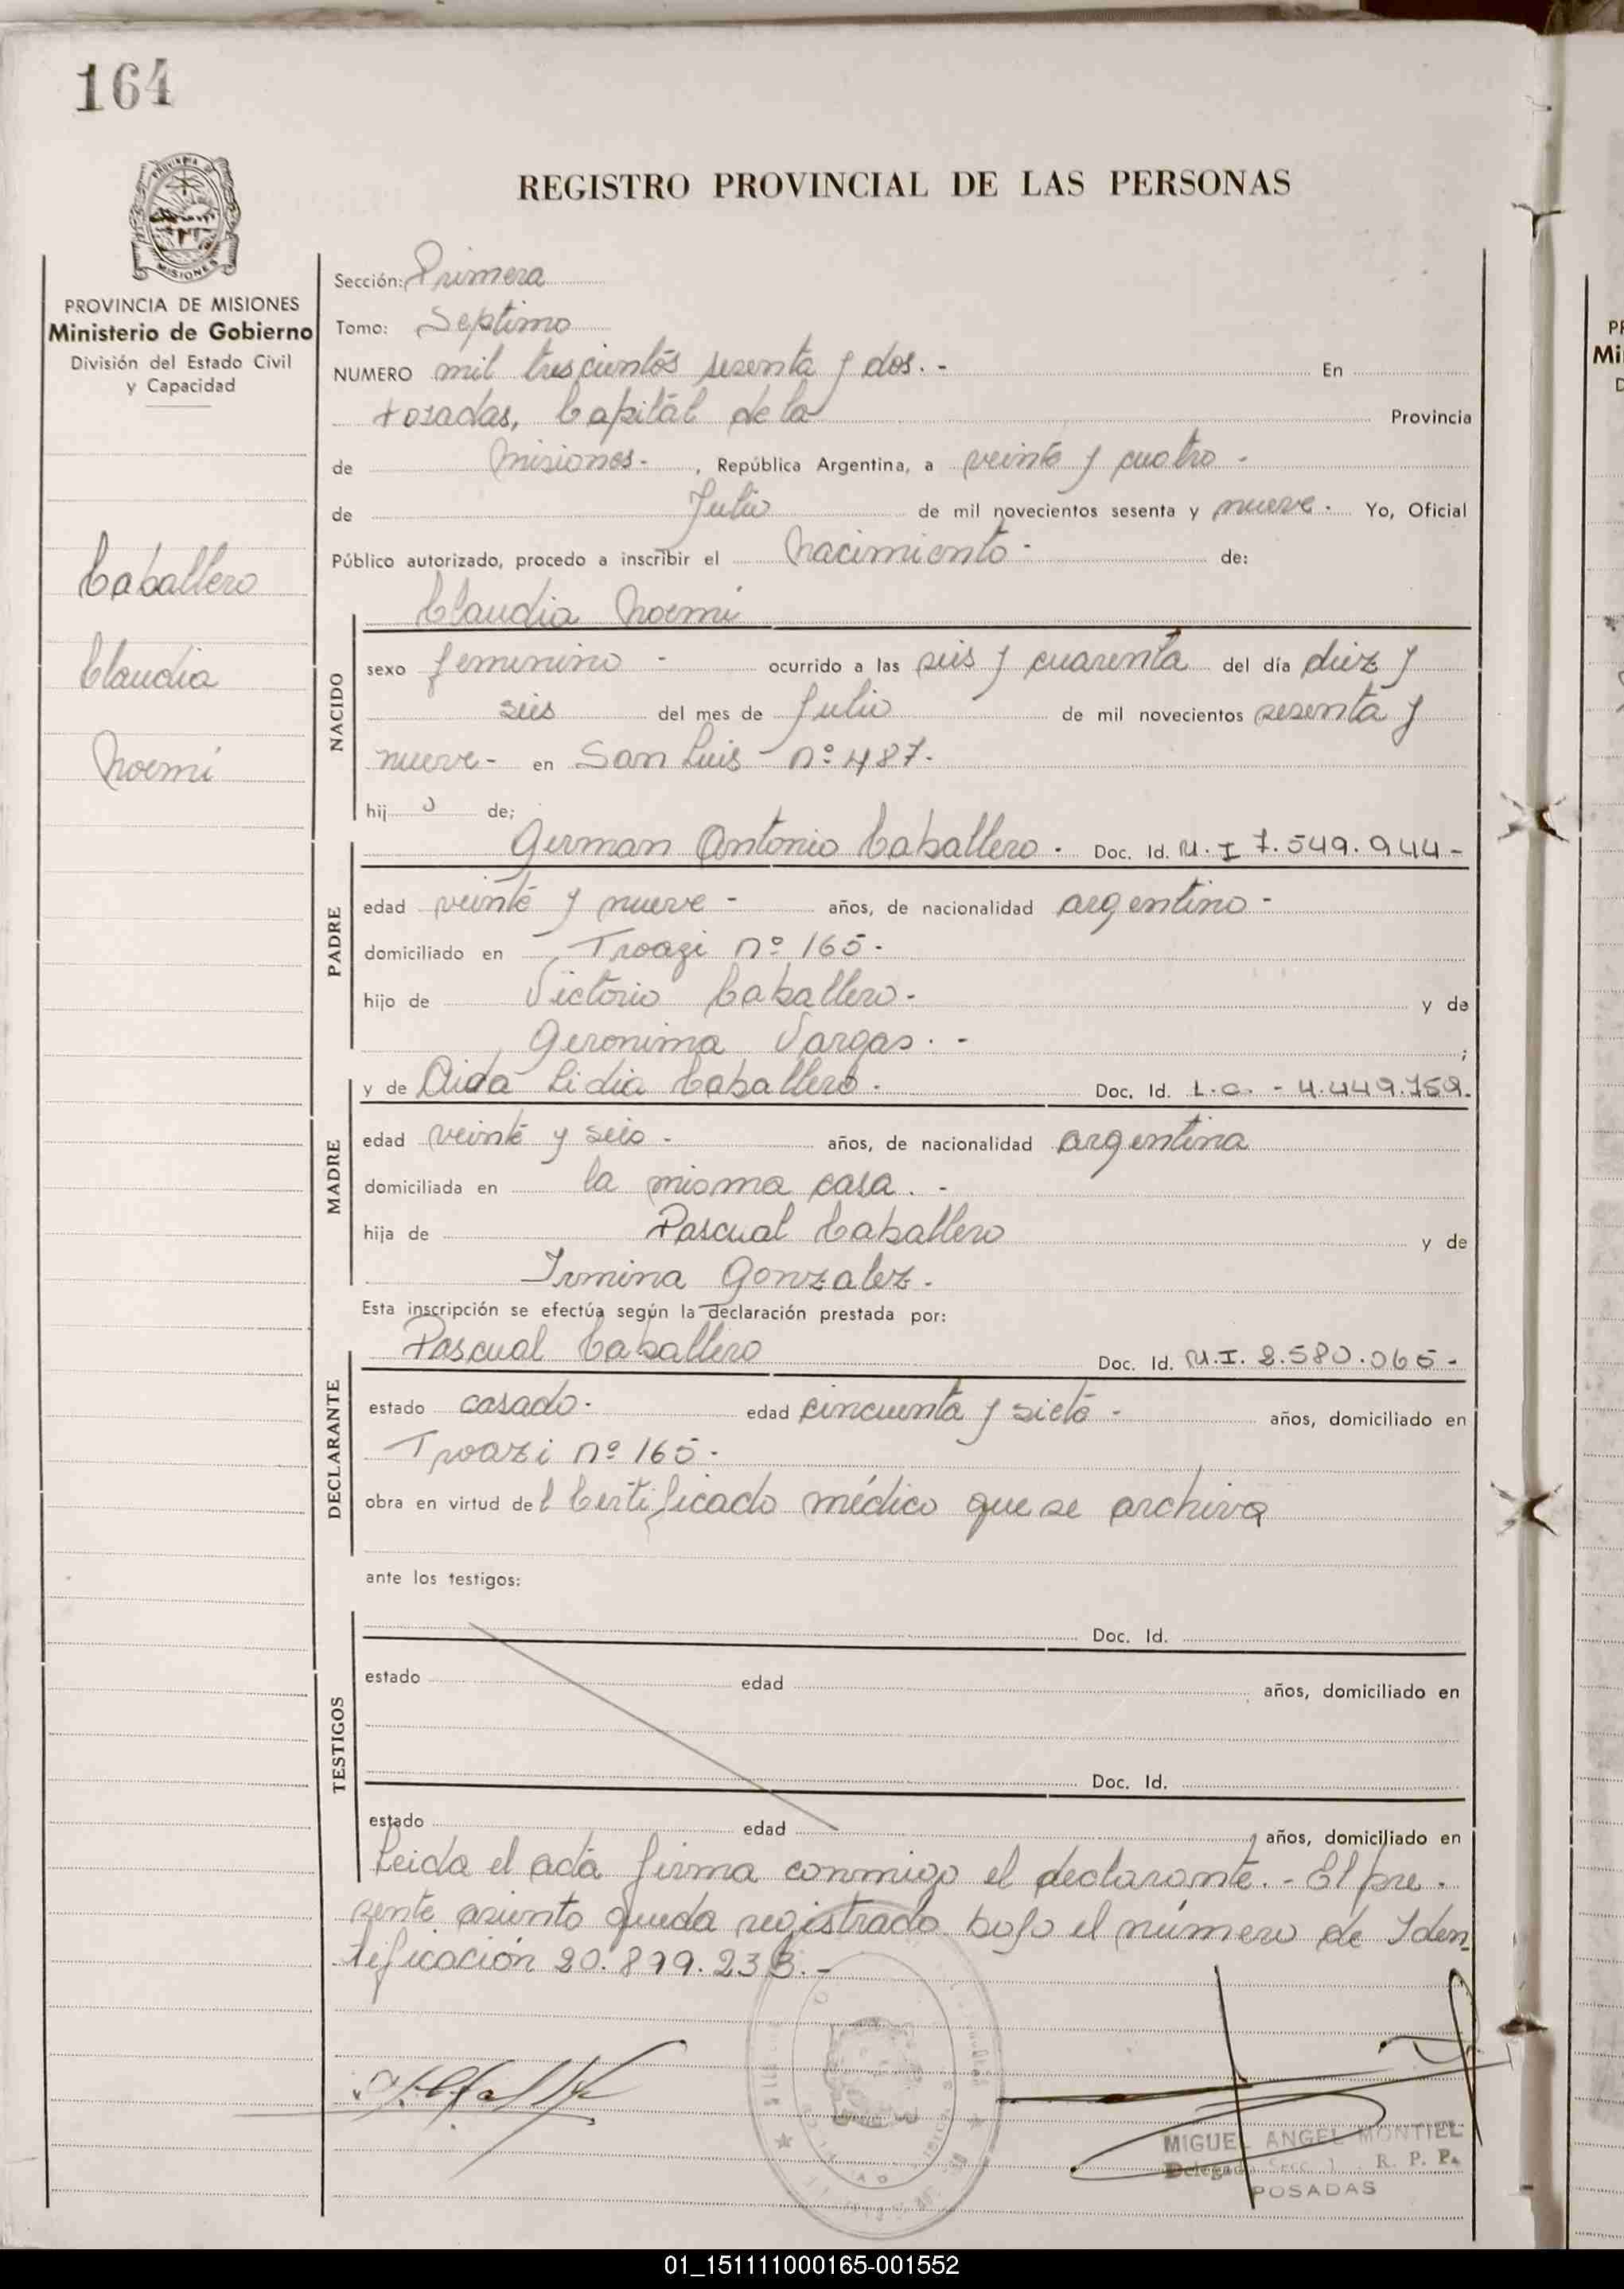 164
REGISTRO PROVINCIAL DE LAS PERSONAS
PROVINCIA DE MISIONES
Ministerio de Gobierno
División del Estado Civil
y Capacidad
Caballero
Claudia
Noemi
Sección: Primera
Tomo: Septimo
NUMERO mil trescientos sesenta y dos. - En
Posadas, Capital de la Provincia
de Misiones - , República Argentina, a veinte y cuatro -
de Julio de mil novecientos sesenta y nueve - Yo, Oficial
Público autorizado, procedo a inscribir el Nacimiento - de:
Claudia Noemi
NACIDO
sexo femenino - ocurrido a las seis y cuarenta del día diez y
seis del mes de Julio de mil novecientos sesenta y
nueve - en San Luis - nº 487.
hij o de;
German Antonio Caballero - Doc. Id. M. I 7.549.944 -
PADRE
edad veinte y nueve - años, de nacionalidad argentino -
domiciliado en Troazi nº 165 -
hijo de Victorio Caballero - y de
Geronima Vargas. - ;
y de Aida Lidia Caballero - Doc. Id. L.C. - 4.449.759.
MADRE
edad veinte y seis - años, de nacionalidad argentina
domiciliada en la misma casa. -
hija de Pascual Caballero y de
Irmina Gonzalez -
Esta inscripción se efectúa según la declaración prestada por:
Pascual Caballero Doc. Id. M.I. 2.580.065 -
DECLARANTE
estado casado - edad cincuenta y siete - años, domiciliado en
Troazi nº 165 -
obra en virtud del Certificado médico que se archiva
ante los testigos:
TESTIGOS
Doc. Id.
estado edad años, domiciliado en
Doc. Id.
estado edad años, domiciliado en
Leida el acta firma conmigo el declarante. - El pre-
sente asiento queda registrado bajo el número de Iden
tificación 20.899.233. -
MIGUEL ANGEL MONTIEL
Delegado Secc. 1 R. P. P.
POSADAS
01_151111000165-001552